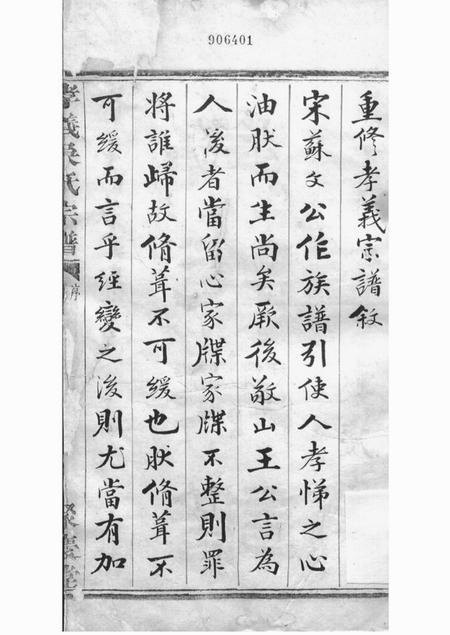 906401
重修孝義宗譜敘
宋蘇文公作族譜引使人孝悌之心
油肰而生尚矣厥後敬山王公言為
人後者當留心家牒家牒不整則罪
將誰歸故脩葺不可緩也肰脩葺不
可緩而言乎經變之後則尤當有加
孝義吳氏宗譜
序